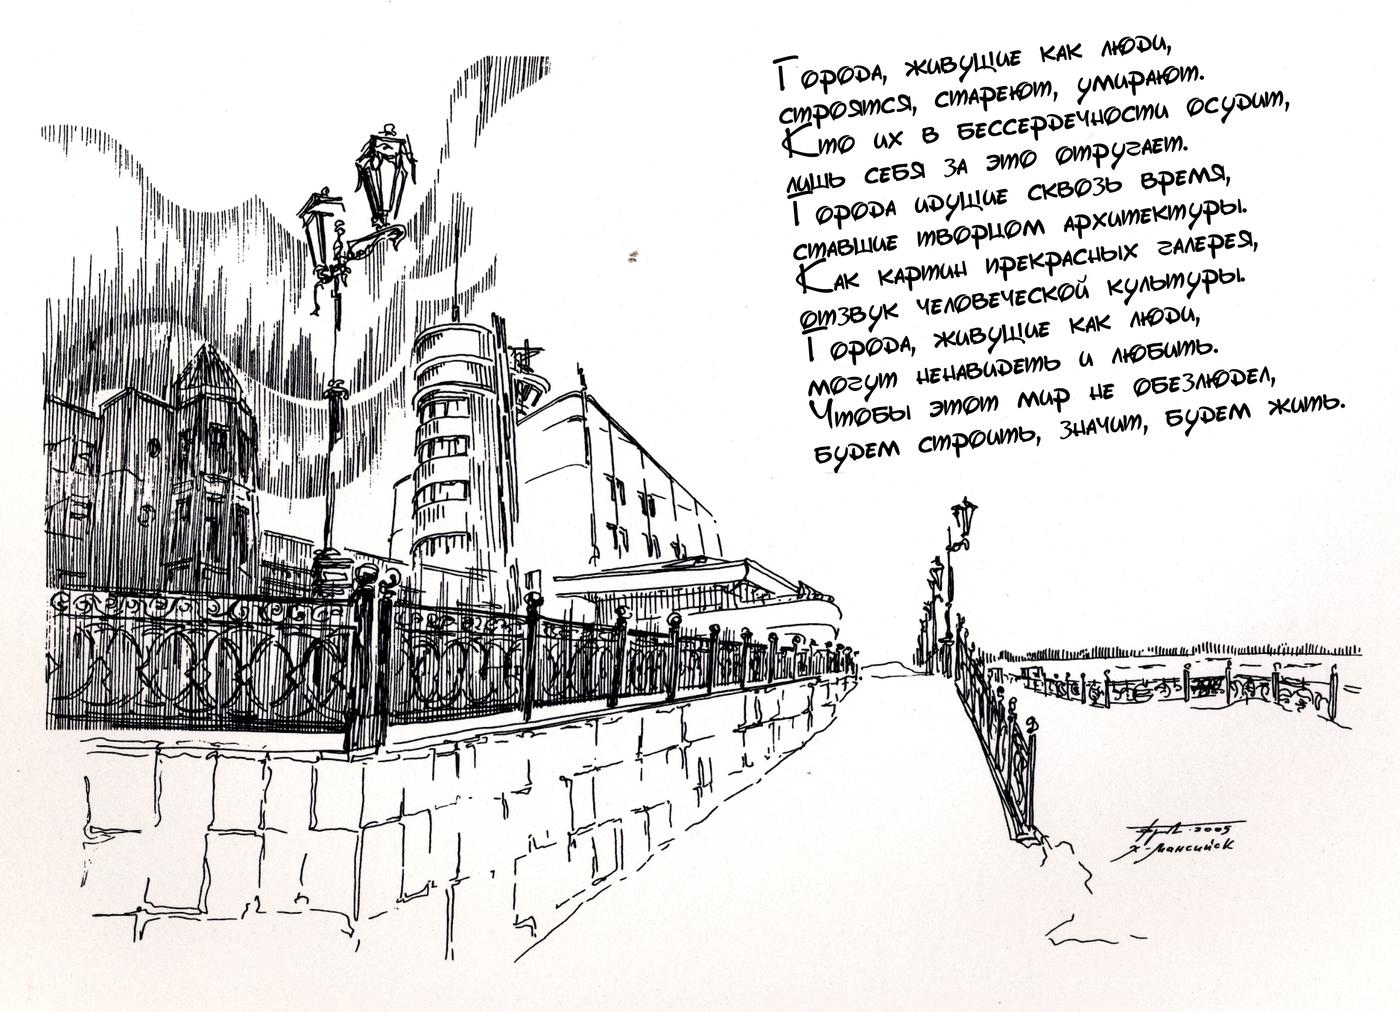 Города, живущие как люди,
строятся, стареют, умирают.
Кто их в бессердечности осудит,
лишь себя за это отругает.
Города идущие сквозь время,
ставшие творцом архитектуры.
Как картин прекрасных галерея,
отзвук человеческой культуры.
Города, живущие как люди,
могут ненавидеть и любить.
Чтобы этот мир не обезлюдел,
будем строить, значит, будем жить.
2005
Х-Мансийск